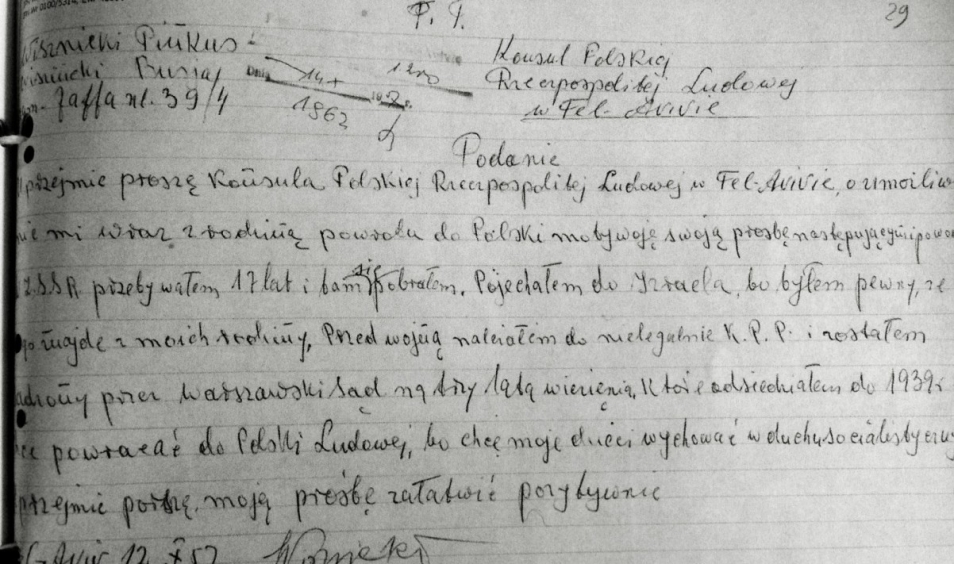 P. P.
29
Wisznicki Pinkus
Busia
Jaffa ul. 39/4
1962
Konsul Polskiej
Rzeczpospolitej Ludowej
w Tel-Avivie
Podanie
przejmie proszę Konsula Polskiej Rzeczpospolitej Ludowej w Tel-Avivie, o umożliw
nie mi wraz z rodziną powrotu do Polski motywoję swoją prośbę następującymi powo
Z.S.S.R. przebywałem 17 lat i tam się pobrałem. Pojechałem do Izraela, bo byłem pewny, że
znajdę z moich rodziny, Przed wojną należałem do nielegalnie K.P.P. i zostałem
ądzony przez Warszawski Sąd na trzy lata więzienia, które odsiedziałem do 1939r
powracać do Polski Ludowej, bo chcę moje dzieci wychować w duchu socialistyczny
przejmie porszę, moją prośbę załatwić pozytywnie
12 X 57